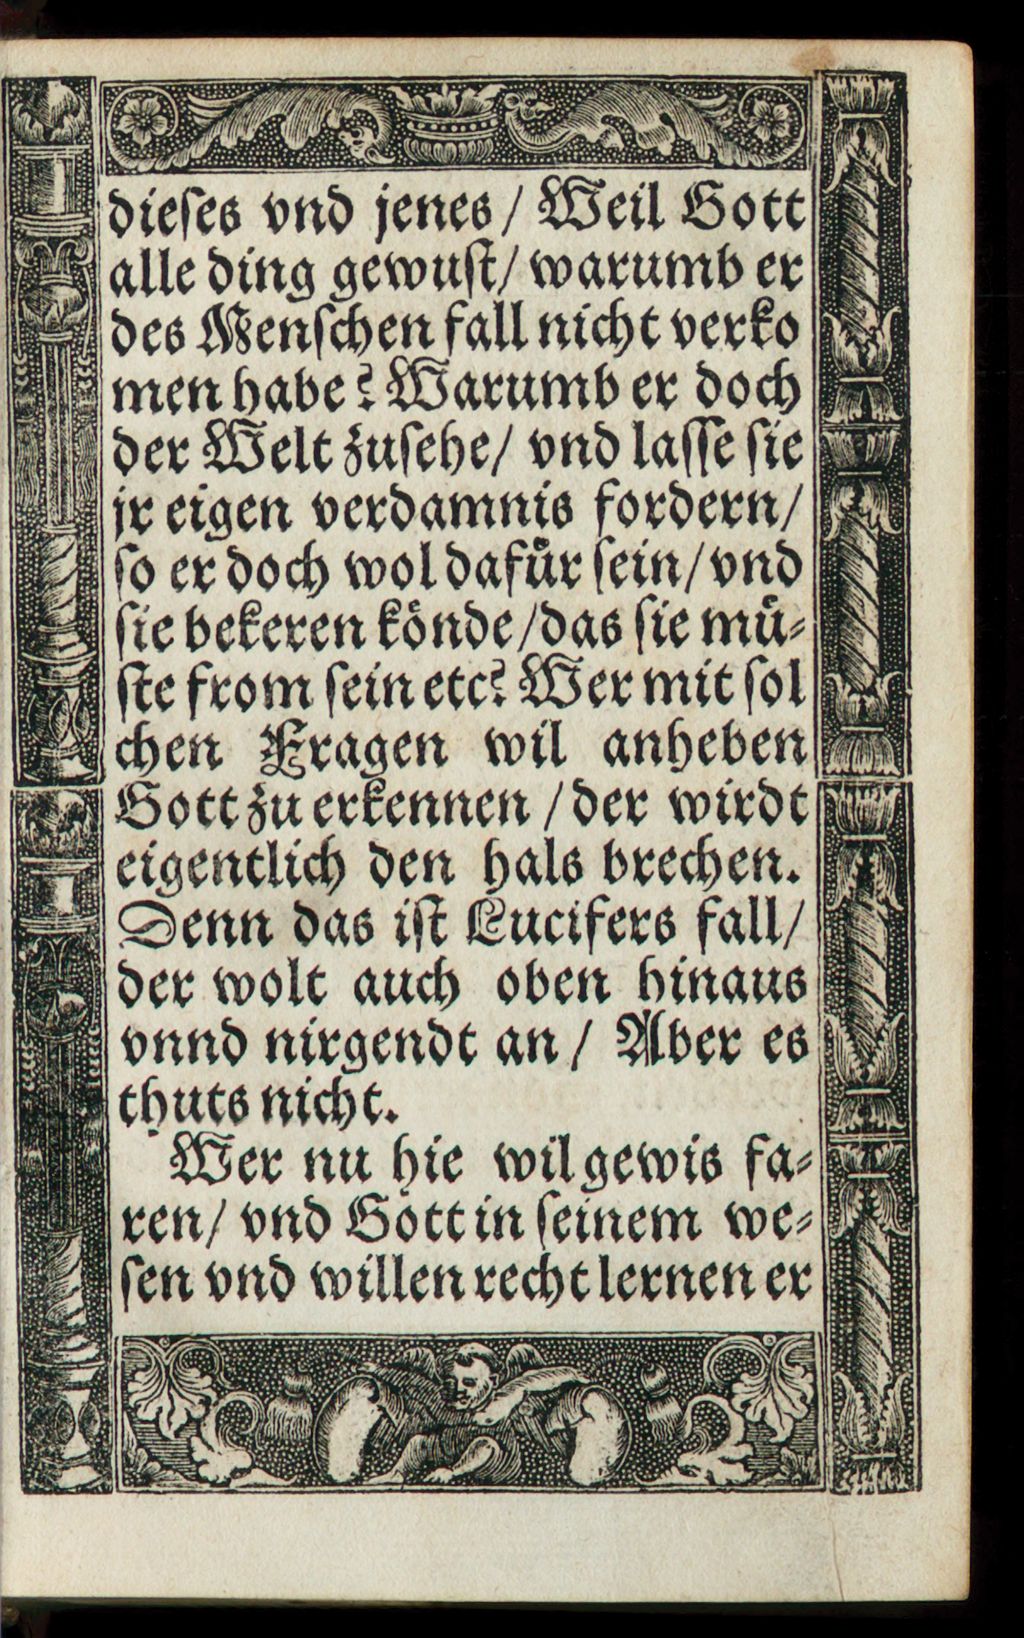 dieſes vnd jenes / Weil Gott
alle ding gewuſt / warumb er
des Menſchen fall nicht verko
men habe? Warumb er doch
der Welt zuſehe / vnd laſſe ſie
jr eigen verdamnis fordern /
ſo er doch wol dafuͤr ſein / vnd
ſie bekeren koͤnde / das ſie muͤ⸗
ſte from ſein etc? Wer mit ſol
chen Fragen wil anheben
Gott zu erkennen / der wirdt
eigentlich den hals brechen.
Denn das iſt Lucifers fall /
der wolt auch oben hinaus
vnnd nirgendt an / Aber es
thuts nicht.
Wer nu hie wil gewis fa⸗
ren / vnd Gott in ſeinem we⸗
ſen vnd willen recht lernen er